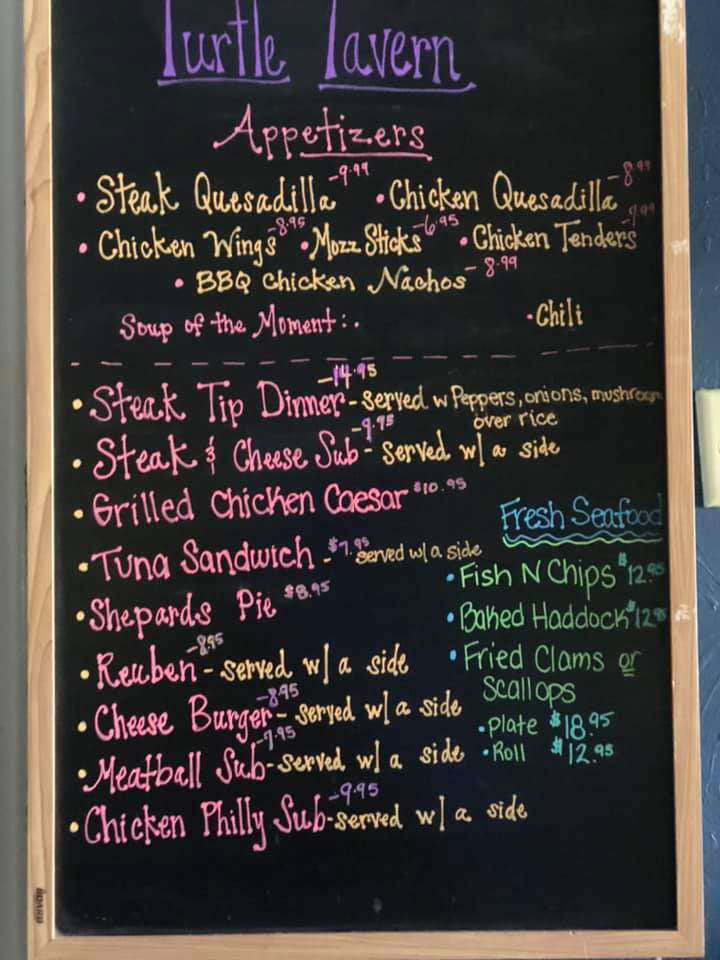 Turtle Tavern
Appetizers
• Steak Quesadilla -9.99 • Chicken Quesadilla -8.99
• Chicken Wings -8.95 • Mozz Sticks -6.95 • Chicken Tenders -7.99
• BBQ Chicken Nachos - 8.99
Soup of the Moment:. • Chili
• Steak Tip Dinner -14.95 - served w Peppers, onions, mushroom
over rice
• Steak & Cheese Sub -9.95 - served w/ a side
• Grilled Chicken Caesar $10.95
• Tuna Sandwich - $7.95 served w/ a side
• Shepards Pie $8.95
• Reuben -8.95 - served w/ a side
• Cheese Burger -8.95 - served w/ a side
• Meatball Sub -7.95 - served w/ a side
• Chicken Philly Sub -9.95 - served w/ a side
Fresh Seafood
• Fish N Chips $12.95
• Baked Haddock $12.95
• Fried Clams or
Scallops
• Plate $18.95
• Roll $12.95